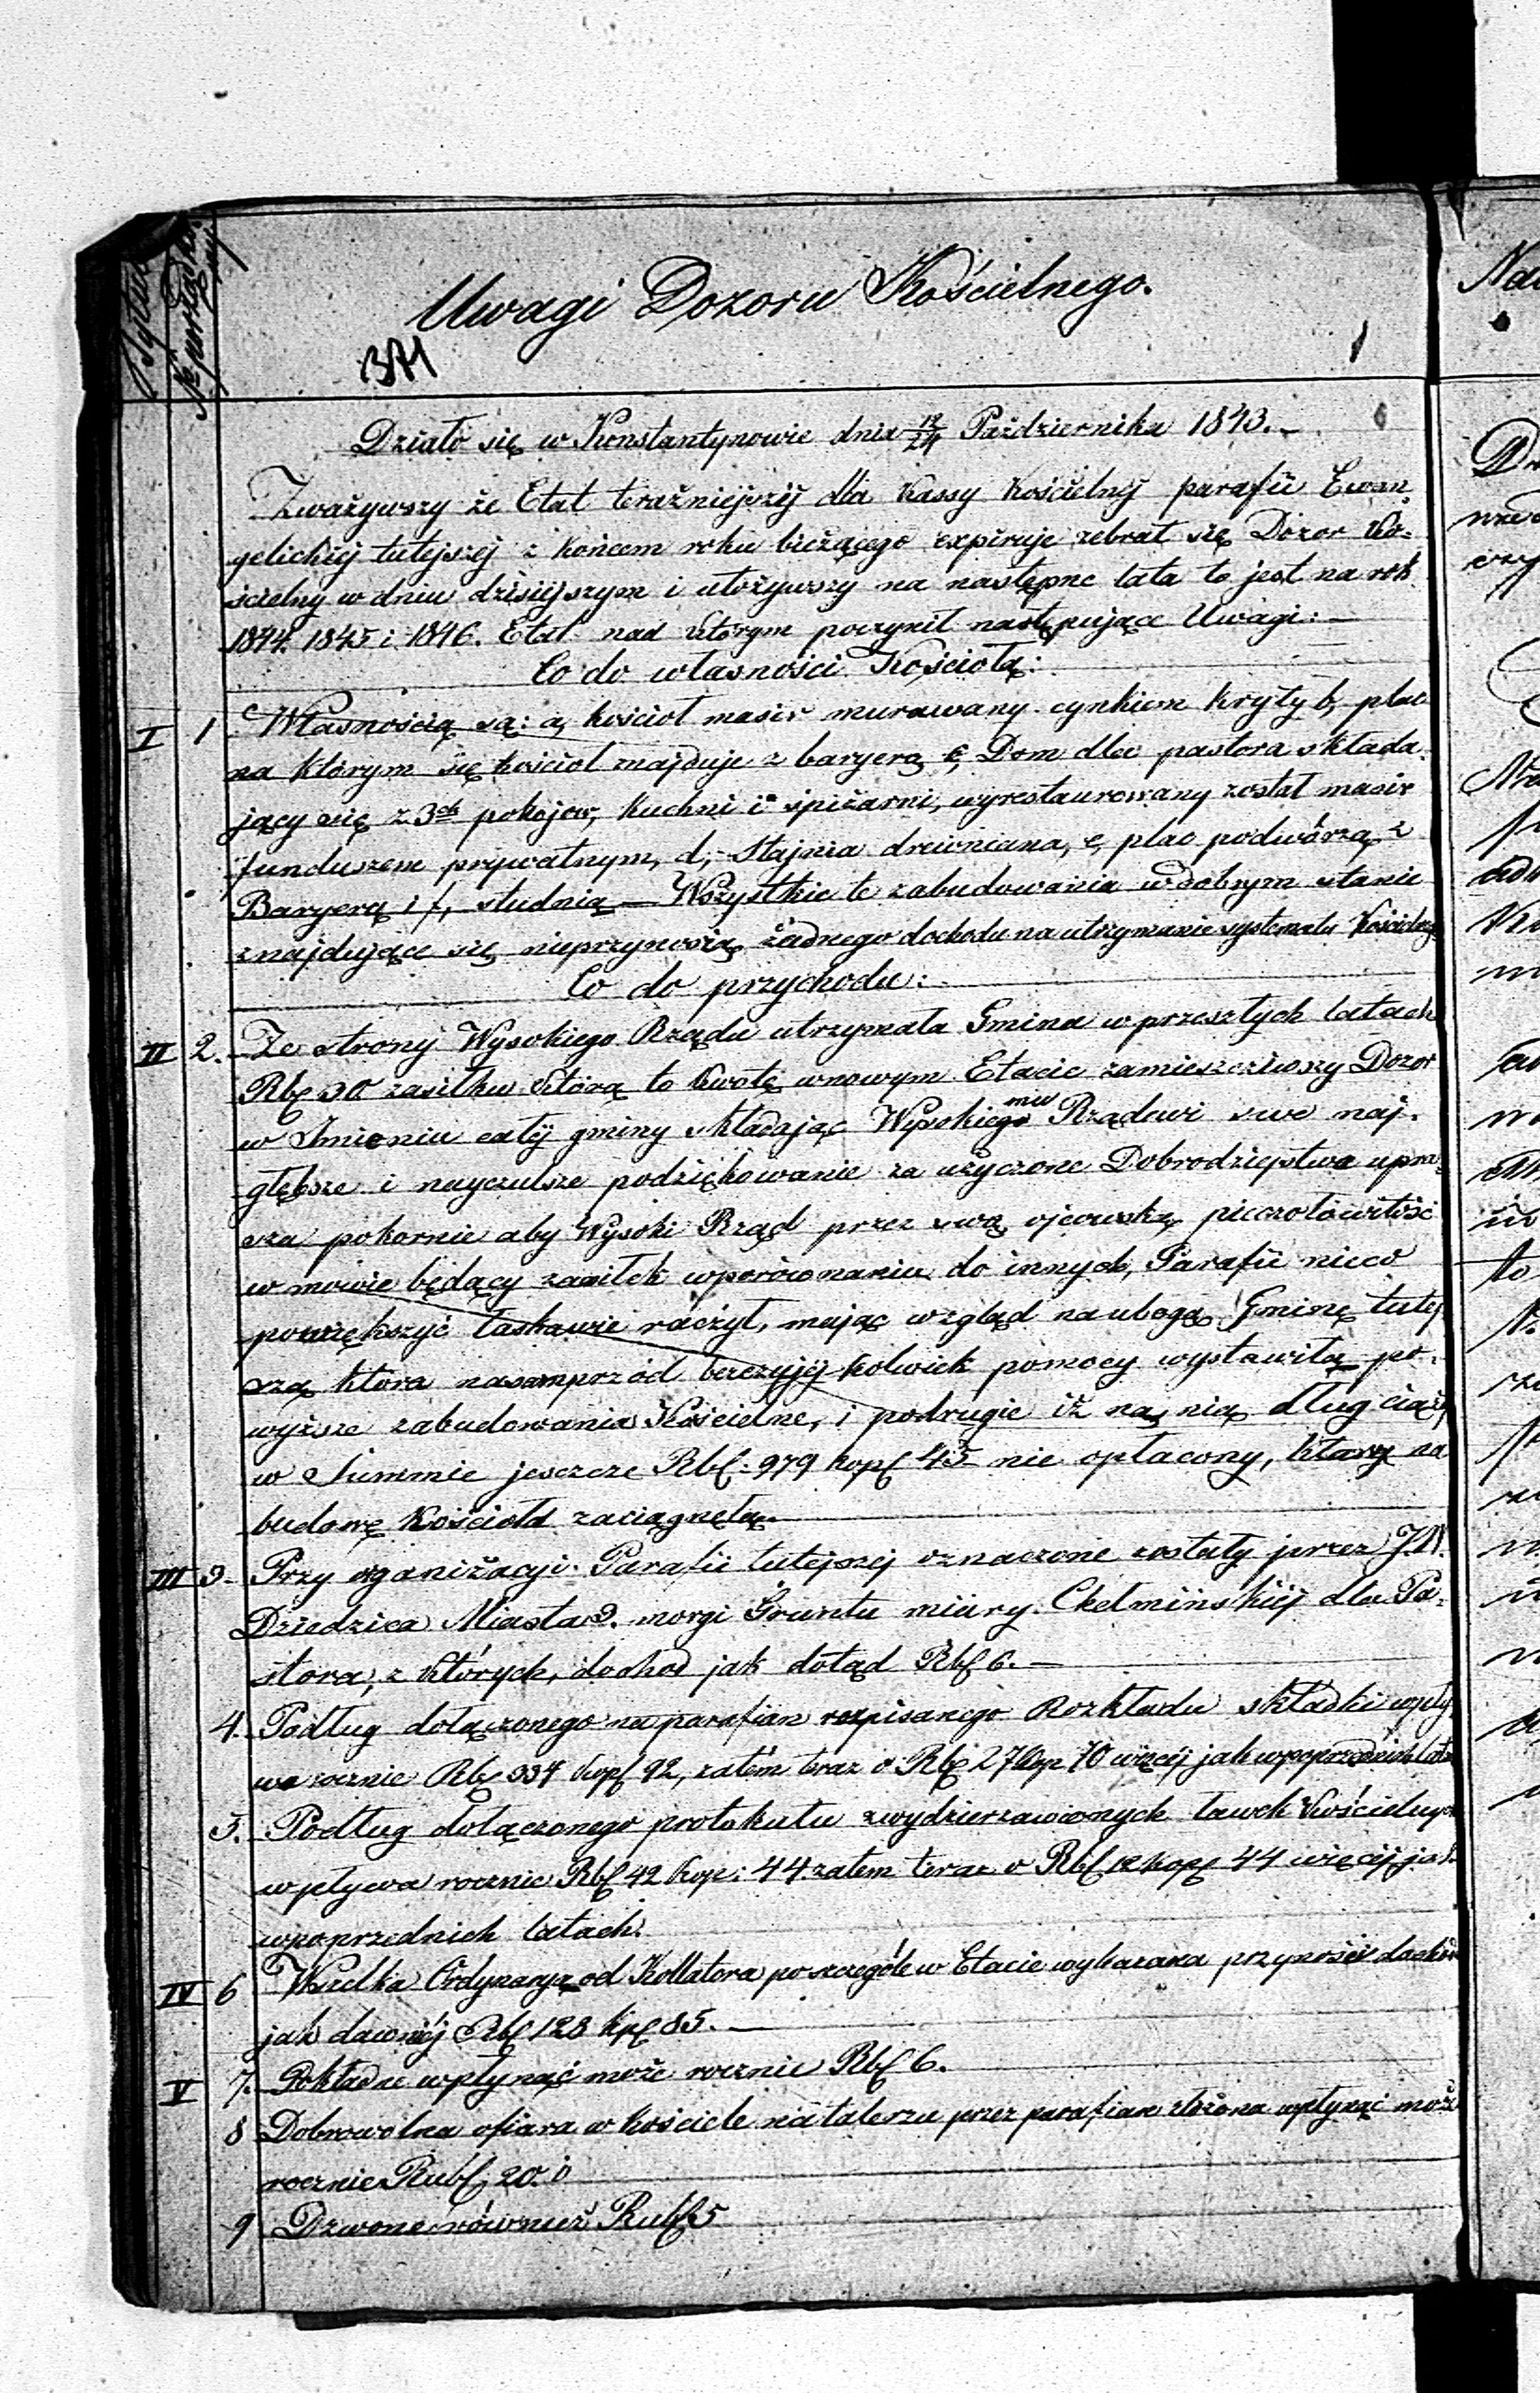 Tytuł
№ porządkowy
Uwagi Dozoru Kościelnego.
371
1
Działo się w Konstantynowie dnia 12/24 Października 1843. —
Zważywszy że Etat teraźniejszy dla Kassy Kościelnéj parafii Ewan-
gelickiéj tutejszéj z końcem roku bieżącego expiruje zebrał się Dozor Ko-
ścielny w dniu dzisiejszym i ułożywszy na następne lata to jest na rok
1844. 1845 i 1846. Etat nad którym poczynił następujące Uwagi: —
Co do własności Kościoła:
I 1 Własnością są: a, kościoł masiv murawany cynkiem kryty b, plac
na którym się kościoł znajduje z baryerą c, Dom dla pastora składa-
jący się z 3ch pokojow, kuchni i śpiżarni, wyrestaurowany został masiv
funduszem prywatnym, d, Stajnia drewniana, e, plac podwórza z
Baryerą i f, studnią — Wszystkie te zabudowania w dobrym stanie
znajdujące się nieprzynoszą żadnego dochodu na utrzymanie systemału Kościelnego
Co do przychodu:
II 2. Ze strony Wysokiego Rządu utrzymała Gmina w przeszłych latach
Rbs 30 zasiłku którą to kwotę wnowym Etacie zamieszcziwszy Dozor
w Imieniu całéj gminy składając Wysokiegomu Rządowi swe naj-
głębsze i nayczulsze podziękowanie za użyczone Dobrodziejstwa upra-
sza pokornie aby Wysoki Rząd przez swą ojcowską pieczołowitość
w mowie będący zasiłek wporównaniu do innych, Parafii nieco
powiększyć łaskawie raczył, mając wzgląd na ubogą Gminę tutej
szą która nasamprzód bezczyjéj kolwiek pomocy wystawiła po-
wyższe zabudowania Kościelne, i podrugie iż na nią dług ciąży
w Summie jeszcze Rbs: 979 kops 45 nie opłacony, ktory na
budowę Kościoła zaciągnęła.
III 3. Przy organizacyi Parafii tutejszéj oznaczone zostały przez J.W.
Dziedzica Miasta 3. morgi Gruntu miary Chełmińskiéj dla Pa-
stora, z których, dochod jak dotąd Rbs 6. —
4. Podług dołączonego na parafian rozpisanego Rozkładu składki wpły
wa rocznie Rbs 334 kops 92, zatém teraz o Rbs 27 kop 70 więcéj jak wpoprzednich lata
5. Podług dołączonego protokułu zwydzierzawionych ławek Kościelnych
wpływa rocznie Rbs 42 kope: 44 zatem teraz o Rbs 12 kops 44 więcéj jak
wpoprzednich latach.
IV 6 Wszelka Ordynarya od Kollatora poszczególe w Etacie wykazana przynosi dochod
jak dawniéj Rbs 128 kps 85. —
V 7. Pokładne wpłynąć może rocznie Rbs 6.
8 Dobrowolna ofiara w kościele na talerzu przez parafian złożona wpłynąć może
rocznie Rubs 20.
9 Dzwone również Rubs 5